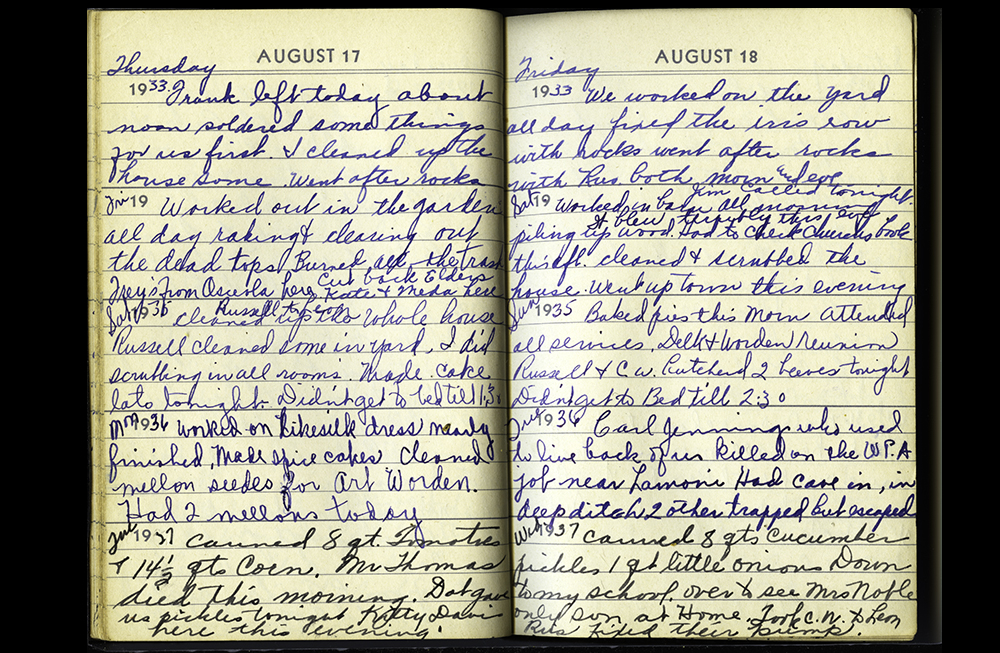 AUGUST 17
Thursday
1933. Frank left today about
noon soldered some things
for us first. I cleaned up the
house some. Went after rocks
Fri 19 Worked out in the garden
all day raking & clearing out
the dead tops. Burned all the trash
Cut back Elders
Frey's from Osceola here Kate & Meda here
Sat 1935 Russell to
cleaned up the whole house
Russell cleaned some in yard. I did
scrubbing in all rooms. Made cake
late tonight. Didn't get to bed till 1:30
Mon 1936 worked on silk dress nearly
finished, Made spice cakes Cleaned
mellon seedes for Art Worden.
Had 2 mellons today
Tue 1937 canned 8 qt. Tomatoes
& 14½ qts Corn. Mr Thomas
died this morning. Dot gave
us pickles tonight Kitty Davis
here this evening.
AUGUST 18
Friday
1933 We worked on the yard
all day fixed the iris row
with rocks went after rocks
with Rus both morn and eve
Jim called tonight.
Sat 19 Worked in barn all morning
It blew terribly this eve
piling up wood. Had to check Church book
this aft. cleaned & scrubbed the
house. Went up town this evening
Sun 1935 Baked pies this Morn Attended
all services. Delk & Worden reunion
Russell & C.W. Butcherd 2 beeves tonight
Didn't get to Bed till 2:30
Tue 1936 Carl Jennings who used
to live back of us killed on the W.P.A
job near Lamoni Had cave in, in
deep ditch 2 other trapped but escaped
Wed 1937 canned 8 qts cucumber
pickles 1 qt little onions Down
to my school, over to see Mrs Noble
only son at Home. Took C.W. & Leon
Rus fixed their pump.